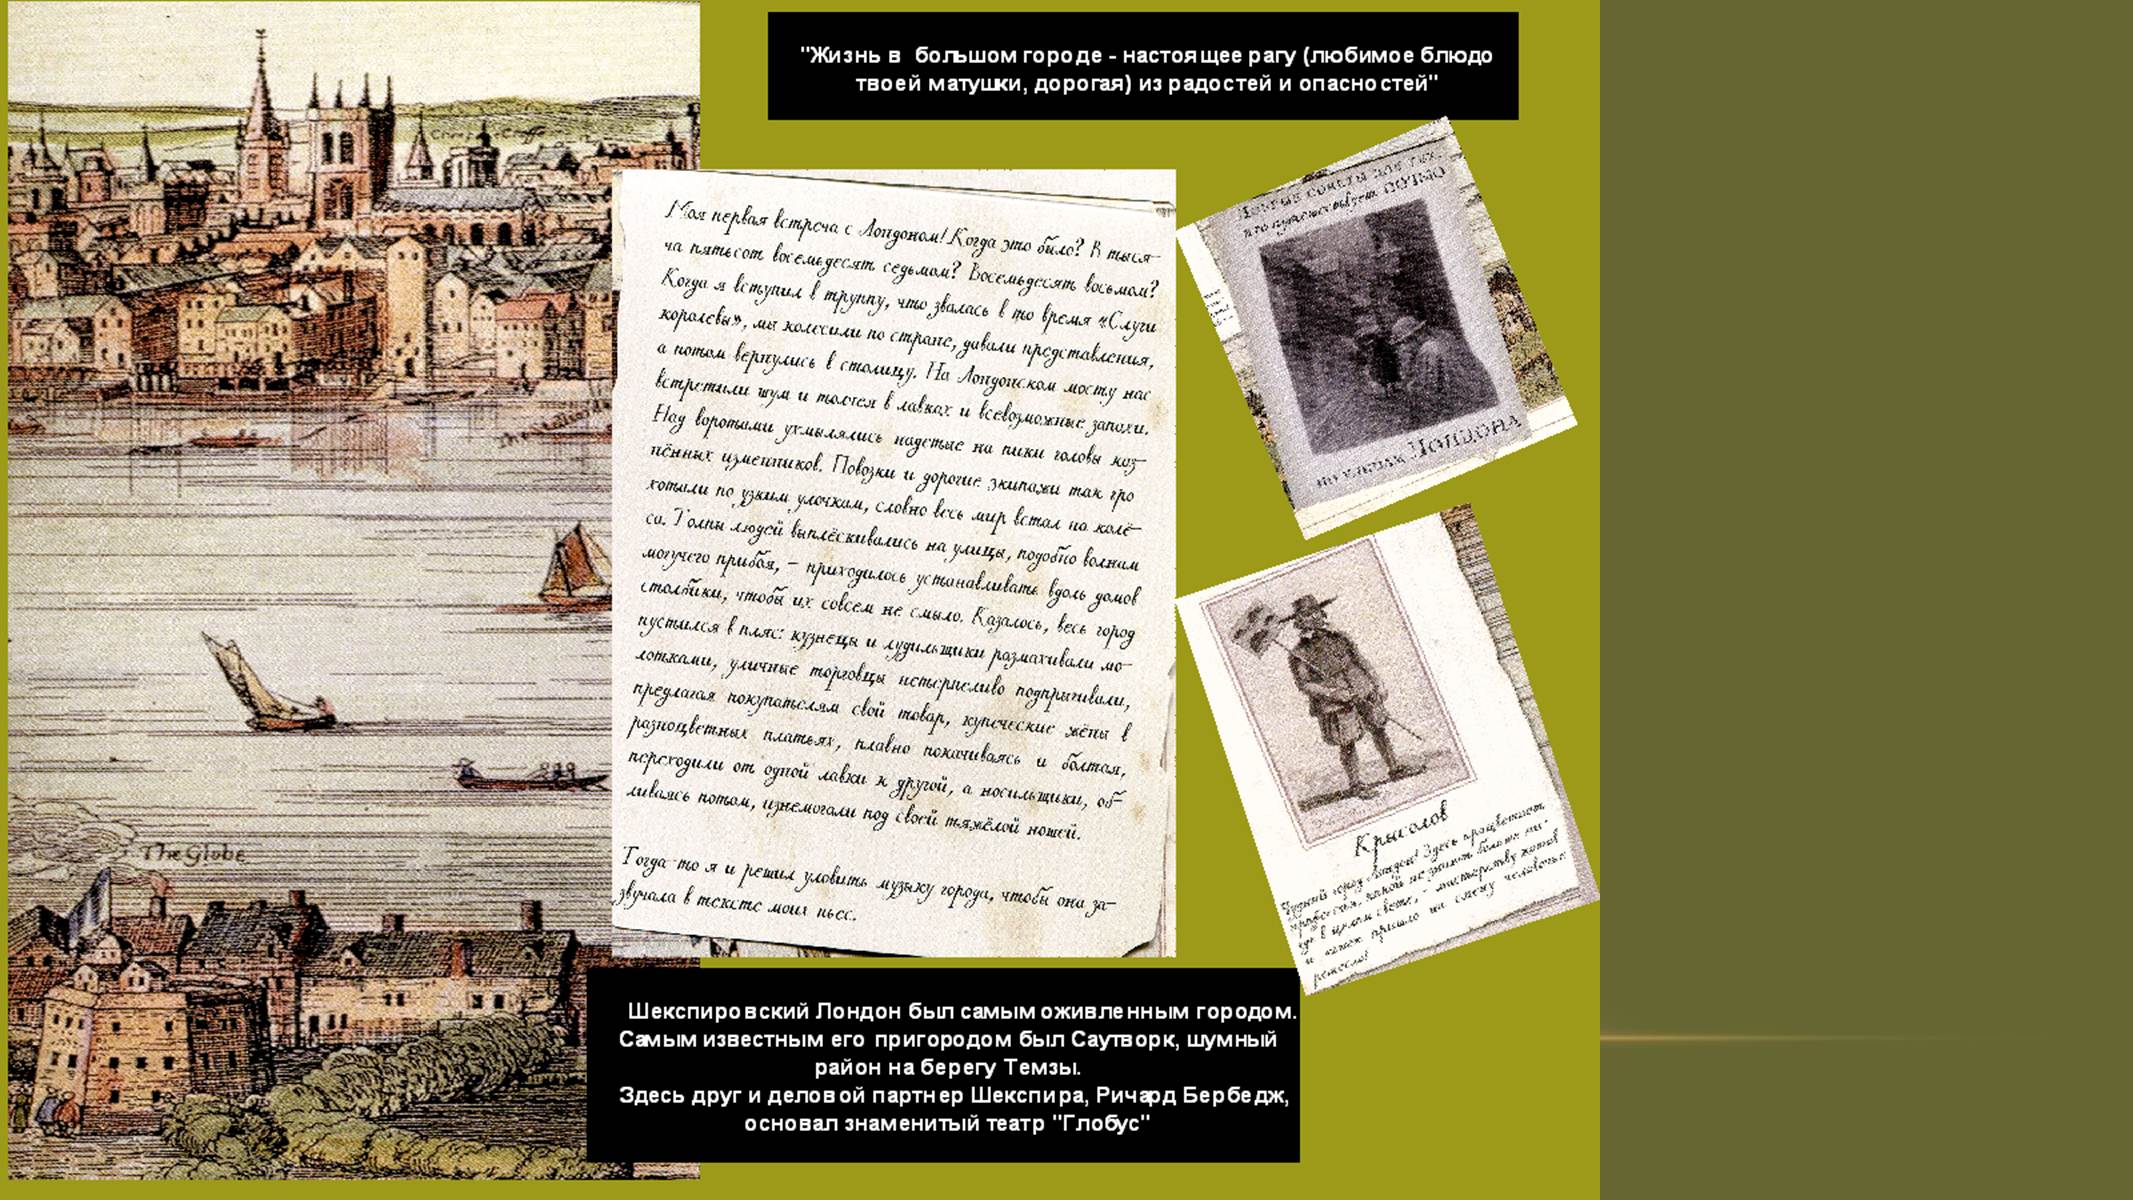 "Жизнь в большом городе - настоящее рагу (любимое блюдо
твоей матушки, дорогая) из радостей и опасностей"
Моя первая встреча с Лондоном! Когда это было? В тыся-
ча пятьсот восемьдесят седьмом? Восемьдесят восьмом?
Когда я вступил в труппу, что звалась в то время «Слуги
королевы», мы колесили по стране, давали представления,
а потом вернулись в столицу. На Лондонском мосту нас
встретили шум и толчея в лавках и всевозможные запахи.
Над воротами ухмылялись надетые на пики головы каз-
нённых изменников. Повозки и дорогие экипажи так гро
хотали по узким улочкам, словно весь мир встал на колё-
са. Толпы людей выплёскивались на улицы, подобно волнам
могучего прибоя, – приходилось устанавливать вдоль домов
столбики, чтобы их совсем не смыло. Казалось, весь город
пустился в пляс: кузнецы и лудильщики размахивали мо-
лотками, уличные торговцы нетерпеливо подпрыгивали,
предлагая покупателям свой товар, купеческие жёны в
разноцветных платьях, плавно покачиваясь и болтая,
переходили от одной лавки к другой, а носильщики, об-
ливаясь потом, изнемогали под своей тяжёлой ношей.
Тогда-то я и решил уловить музыку города, чтобы она за-
звучала в тексте моих пьес.
советы для тех,
кто путешествует по
улицам Лондона
The Globe
Крысолов
Чудный город Лондон! Здесь процветают
профессии, какой не знают больше ни-
где в целом свете, – мастерству котов
и кошек пришло на смену человечье
ремесло!
Шекспировский Лондон был самым оживленным городом.
Самым известным его пригородом был Саутворк, шумный
район на берегу Темзы.
Здесь друг и деловой партнер Шекспира, Ричард Бербедж,
основал знаменитый театр "Глобус"